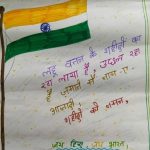 लहू वतन के शहीदों का
रंग लाया है, उछल रहा
है ज़माने में नाम ए
आज़ादी,
शहीदों को नमन,
जय हिन्द, जय भारत,